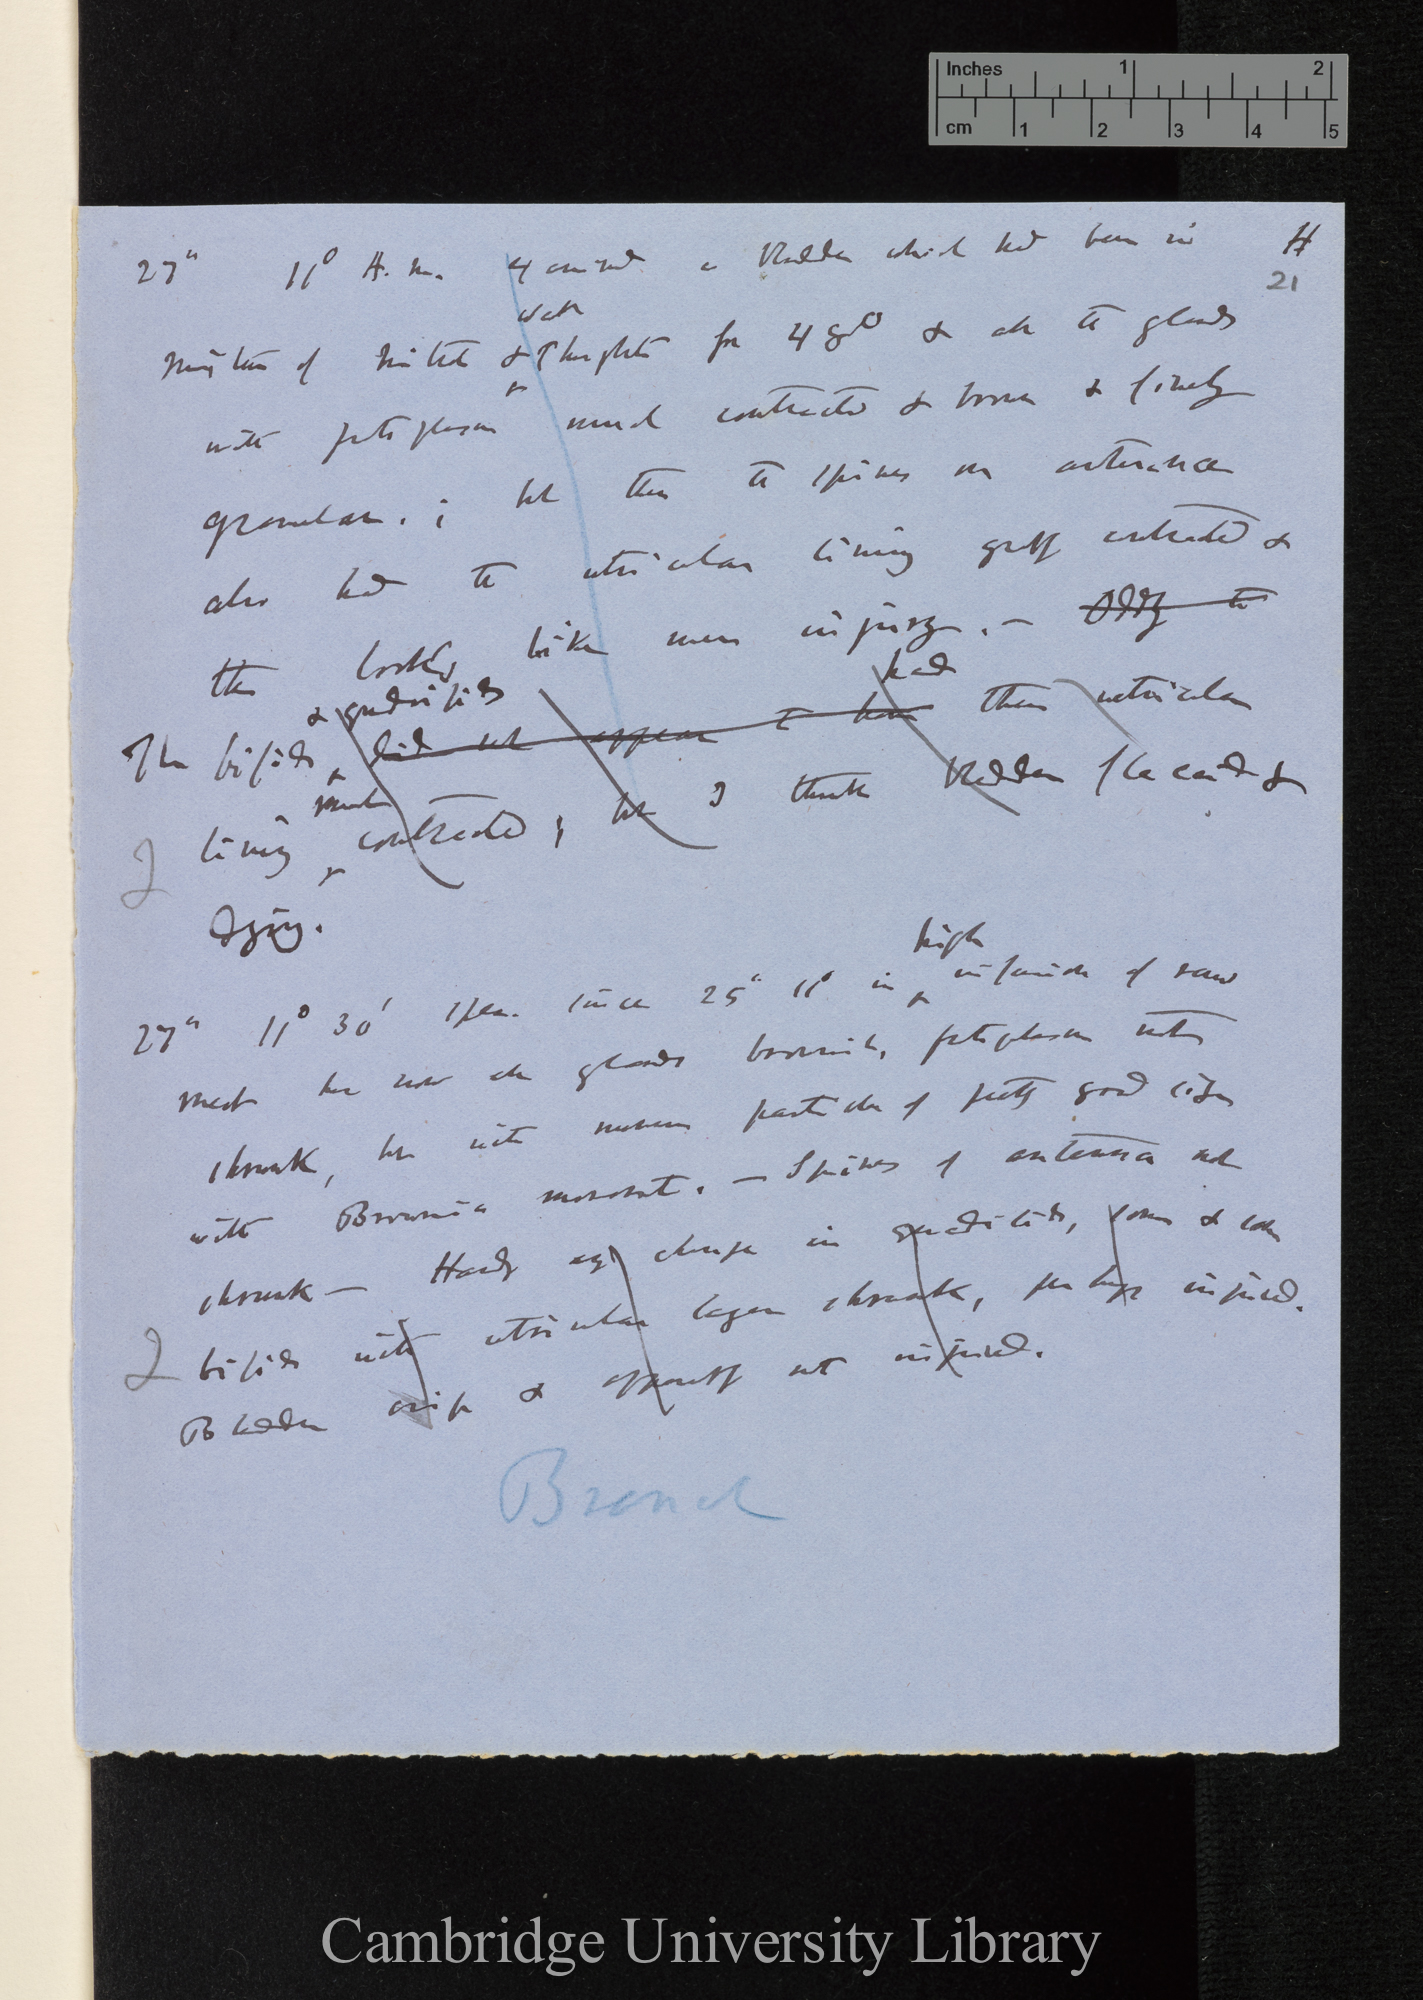 Inches 1 2
cm 1 2 3 4 5
H
21
27th 11° A.m. examined a bladder which had been in
mixture of Nitrate & Phosphate for 48° & all the glands
weak
with protoplasm much contracted & brown & finely
granular. ; but then the spines on antennae
also had the utricular lining greatly contracted &
this looks like mere injury. — Oddly the
& quadrifids had
The bifids did not appear to have their utricular
much
lining contracted; but I think bladder flaccid &
dying.
high
27th 11° 30' Spec. since 25th 11° in infusion of raw
meat has now all glands brownish, protoplasm not
shrunk, but with numerous particles of pretty good size
with Brownian movement. — Spines of antennae not
shrunk — Hardly any change in quadrifids, some &
bifids with utricular layer shrunk, perhaps injured.
Bladder crisp & apparently not injured.
Branch
Cambridge University Library